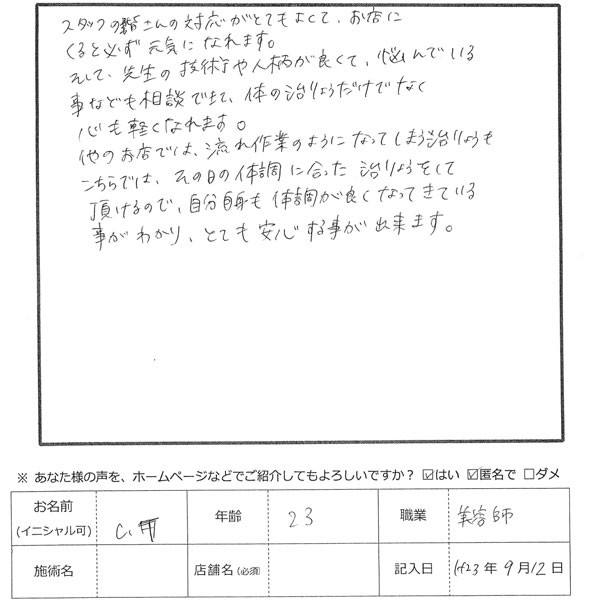 スタッフの皆さんの対応がとてもよくて、お店に
くると必ず元気になれます。
そして、先生の技術や人柄が良くて、悩んでいる
事なども相談できて、体の治りょうだけでなく
心も軽くなれます。
他のお店では、流れ作業のようになってしまう治りょうも
こちらでは、その日の体調に合った治りょうをして
頂けるので、自分自身も体調が良くなってきている
事がわかり、とても安心する事が出来ます。
※ あなた様の声を、ホームページなどでご紹介してもよろしいですか? ☑はい ☑匿名で □ダメ
お名前 (イニシャル可) C. 年齢 23 職業 美容師
施術名 店舗名(必須) 記入日 H23年 9月12日